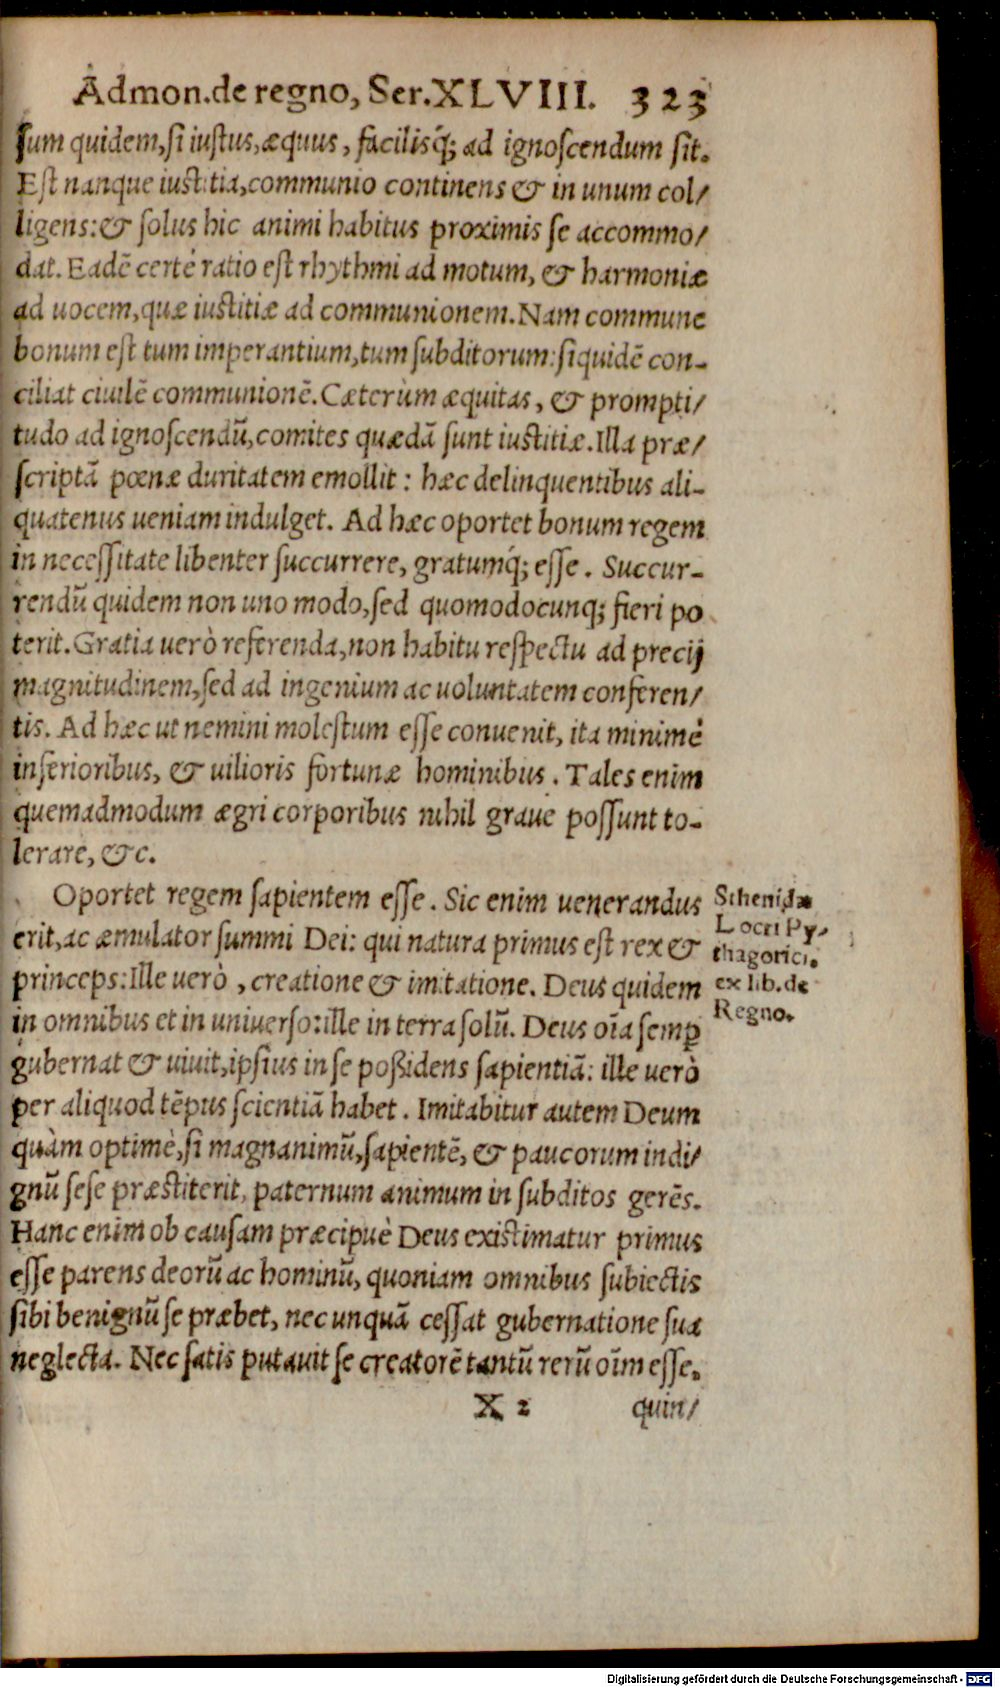 Admon.de regno, Ser.XLVIII. 323
ſum quidem,ſi iuſtus,æquus, facilisq́; ad ignoſcendum ſit.
Eſt nanque iustitia,communio continens & in unum col/
ligens:& ſolus hic animi habitus proximis ſe accommo/
dat. Eadē certè ratio eſt rhythmi ad motum, & harmoniæ
ad uocem,quæ iustitiæ ad communionem.Nam commune
bonum eſt tum imperantium,tum ſubditorum:ſiquidē con-
ciliat ciuilē communionē.Cæterùm æquitas, & prompti/
tudo ad ignoſcendū,comites quædā ſunt iustitiæ.Illa præ/
ſcriptā pœnæ duritatem emollit: hæc delinquentibus ali-
quatenus ueniam indulget. Ad hæc oportet bonum regem
in neceſſitate libenter ſuccurrere, gratumq́; eſſe. Succur-
rendū quidem non uno modo,ſed quomodocunq; fieri po
terit.Gratia uerò referenda,non habitu reſpectu ad precij
magnitudinem,ſed ad ingenium ac uoluntatem conferen/
tis. Ad hæc ut nemini moleſtum eſſe conuenit, ita minimè
inferioribus, & uilioris fortunæ hominibus. Tales enim
quemadmodum ægri corporibus nihil graue poſſunt to-
lerare, &c.
Oportet regem ſapientem eſſe. Sic enim uenerandus
erit,ac æmulator ſummi Dei: qui natura primus eſt rex &
princeps:Ille uerò, creatione & imitatione. Deus quidem
in omnibus et in uniuerſo:ille in terra ſolū. Deus oīa ſemꝑ
gubernat & uiuit,ipſius in ſe poßidens ſapientiā: ille uerò
per aliquod tēpus ſcientiā habet. Imitabitur autem Deum
quàm optimè,ſi magnanimū,ſapientē, & paucorum indi/
gnū ſeſe præstiterit, paternum animum in ſubditos gerēs.
Hanc enim ob cauſam præcipuè Deus existimatur primus
eſſe parens deorū ac hominū, quoniam omnibus ſubiectis
ſibi benignū ſe præbet, nec unquā ceſſat gubernatione ſua
neglecta. Nec ſatis putauit ſe creatorē tantū rerū oīm eſſe.
X 2 quin/
Sthenidæ
Locri Py/
thagorici.
ex lib.de
Regno.
Digitalisierung gefördert durch die Deutsche Forschungsgemeinschaft - DFG